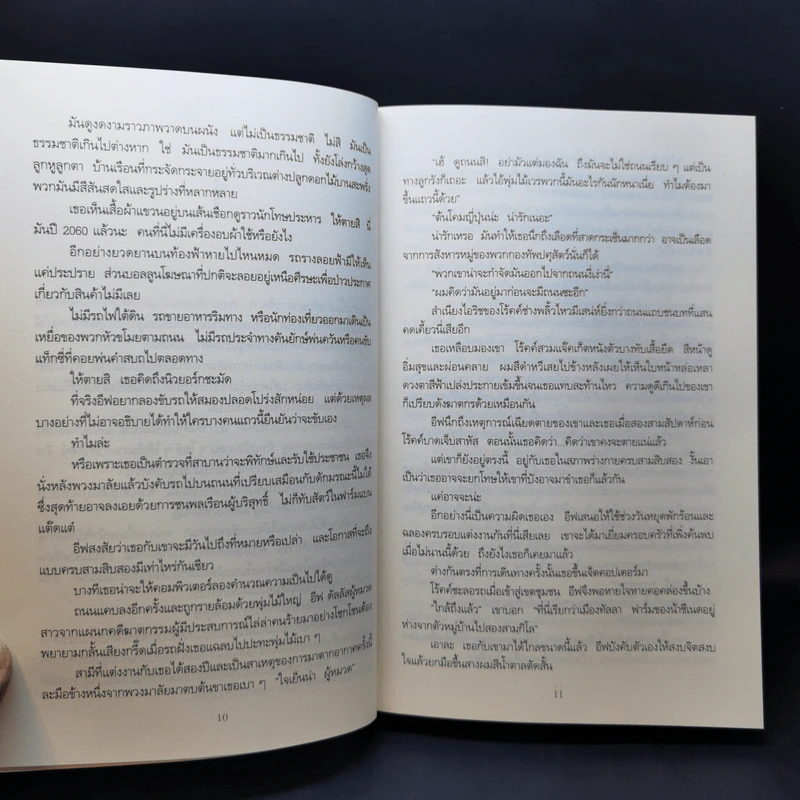 มันดูงดงามราวภาพวาดบนผนัง แต่ไม่เป็นธรรมชาติ ไม่สิ มันเป็น
ธรรมชาติเกินไปต่างหาก ใช่ มันเป็นธรรมชาติมากเกินไป ทั้งยังโล่งกว้างสุด
ลูกหูลูกตา บ้านเรือนที่กระจัดกระจายอยู่ทั่วบริเวณต่างปลูกดอกไม้บานสะพรั่ง
พวกมันมีสีสันสดใสและรูปร่างที่หลากหลาย
เธอเห็นเสื้อผ้าแขวนอยู่บนเส้นเชือกดูราวนักโทษประหาร ให้ตายสิ นี่
มันปี 2060 แล้วนะ คนที่นี่ไม่มีเครื่องอบผ้าใช้หรือยังไง
อีกอย่างยวดยานบนท้องฟ้าหายไปไหนหมด รถรางลอยฟ้ามีให้เห็น
แค่ประปราย ส่วนบอลลูนโฆษณาที่ปกติจะลอยอยู่เหนือศีรษะเพื่อป่าวประกาศ
เกี่ยวกับสินค้าไม่มีเลย
ไม่มีรถไฟใต้ดิน รถขายอาหารริมทาง หรือนักท่องเที่ยวออกมาเดินเป็น
เหยื่อของพวกหัวขโมยตามถนน ไม่มีรถประจำทางคันยักษ์พ่นควันหรือคนขับ
แท็กซี่ที่คอยพ่นคำสบถไปตลอดทาง
ให้ตายสิ เธอคิดถึงนิวยอร์กชะมัด
ที่จริงอีฟอยากลองขับรถให้สมองปลอดโปร่งสักหน่อย แต่ด้วยเหตุผล
บางอย่างที่ไม่อาจอธิบายได้ทำให้ใครบางคนแถวนี้ยืนยันว่าจะขับเอง
ทำไมล่ะ
หรือเพราะเธอเป็นตำรวจที่สาบานว่าจะพิทักษ์และรับใช้ประชาชน เธอจึง
นั่งหลังพวงมาลัยแล้วบังคับรถไปบนถนนที่เปรียบเสมือนกับดักมรณะนี้ไม่ได้
ซึ่งสุดท้ายอาจลงเอยด้วยการชนพลเรือนผู้บริสุทธิ์ ไม่ก็ทับสัตว์ในฟาร์มแบน
แต๊ดแต๋
อีฟสงสัยว่าเธอกับเขาจะมีวันไปถึงที่หมายหรือเปล่า และโอกาสที่จะถึง
แบบครบสามสิบสองมีเท่าไหร่กันเชียว
บางทีเธอน่าจะให้คอมพิวเตอร์ลองคำนวณความเป็นไปได้ดู
ถนนแคบลงอีกครั้งและถูกรายล้อมด้วยพุ่มไม้ใหญ่ อีฟ ดัลลัสผู้หมวด
สาวจากแผนกคดีฆาตกรรมผู้มีประสบการณ์ไล่ล่าคนร้ายมาอย่างโชกโชนต้อง
พยายามกลั้นเสียงกรี๊ดเมื่อรถฝั่งเธอแฉลบไปปะทะพุ่มไม้เบา ๆ
สามีที่แต่งงานกับเธอได้สองปีและเป็นสาเหตุของการมาตากอากาศครั้งนี้
ละมือข้างหนึ่งจากพวงมาลัยมาตบต้นขาเธอเบา ๆ "ใจเย็นน่า ผู้หมวด"
10
"เฮ้ ดูถนนสิ! อย่ามัวแต่มองฉัน ถึงมันจะไม่ใช่ถนนเรียบ ๆ แต่เป็น
ทางลูกรังก็เถอะ แล้วไอ้พุ่มไม้เวรพวกนี้มันอะไรกันนักหนาเนี่ย ทำไมต้องมา
ขึ้นแถวนี้ด้วย"
"ต้นโคมญี่ปุ่นน่ะ น่ารักเนอะ"
น่ารักเหรอ มันทำให้เธอนึกถึงเลือดที่สาดกระเซ็นมากกว่า อาจเป็นเลือด
จากการสังหารหมู่ของพวกกองทัพปศุสัตว์นั่นก็ได้
"พวกเขาน่าจะกำจัดมันออกไปจากถนนงี่เง่านี่"
"ผมคิดว่ามันอยู่มาก่อนจะมีถนนซะอีก"
สำเนียงไอริชของโร้คค์ช่างพลิ้วไหวมีเสน่ห์ยิ่งกว่าถนนแถบชนบทที่แสน
คดเคี้ยวนี่เสียอีก
เธอเหลือบมองเขา โร้คค์สวมแจ็คเก็ตหนังตัวบางทับเสื้อยืด สีหน้าดู
อิ่มสุขและผ่อนคลาย ผมสีดำหวีเสยไปข้างหลังเผยให้เห็นใบหน้าหล่อเหลา
ดวงตาสีฟ้าเปล่งประกายเข้มขึ้นจนเธอแทบสะท้านไหว ความดูดีเกินไปของเขา
ก็เปรียบดังฆาตกรด้วยเหมือนกัน
อีฟนึกถึงเหตุการณ์เฉียดตายของเขาและเธอเมื่อสองสามสัปดาห์ก่อน
โร้คค์บาดเจ็บสาหัส ตอนนั้นเธอคิดว่า...คิดว่าเขาคงจะตายแน่แล้ว
แต่เขาก็ยังอยู่ตรงนี้ อยู่กับเธอในสภาพร่างกายครบสามสิบสอง งั้นเอา
เป็นว่าเธออาจจะยกโทษให้เขาที่บังอาจมาขำเธอก็แล้วกัน
แค่อาจจะน่ะ
อีกอย่างนี่เป็นความผิดเธอเอง อีฟเสนอให้ใช้ช่วงวันหยุดพักร้อนและ
ฉลองครบรอบแต่งงานกันที่นี่เสียเลย เขาจะได้มาเยี่ยมครอบครัวที่เพิ่งค้นพบ
เมื่อไม่นานนี้ด้วย ถึงยังไงเธอก็เคยมาแล้ว
ต่างกันตรงที่การเดินทางครั้งนั้นเธอขึ้นเจ็ตคอปเตอร์มา
โร้คค์ชะลอรถเมื่อเข้าสู่เขตชุมชน อีฟจึงพอหายใจหายคอคล่องขึ้นบ้าง
"ใกล้ถึงแล้ว" เขาบอก "ที่นี่เรียกว่าเมืองทัลลา ฟาร์มของน้าซิเนดอยู่
ห่างจากตัวหมู่บ้านไปสองสามกิโล"
เอาละ เธอกับเขามาได้ไกลขนาดนี้แล้ว อีฟบังคับตัวเองให้สงบจิตสงบ
ใจแล้วยกมือขึ้นสางผมสีน้ำตาลตัดสั้น
11